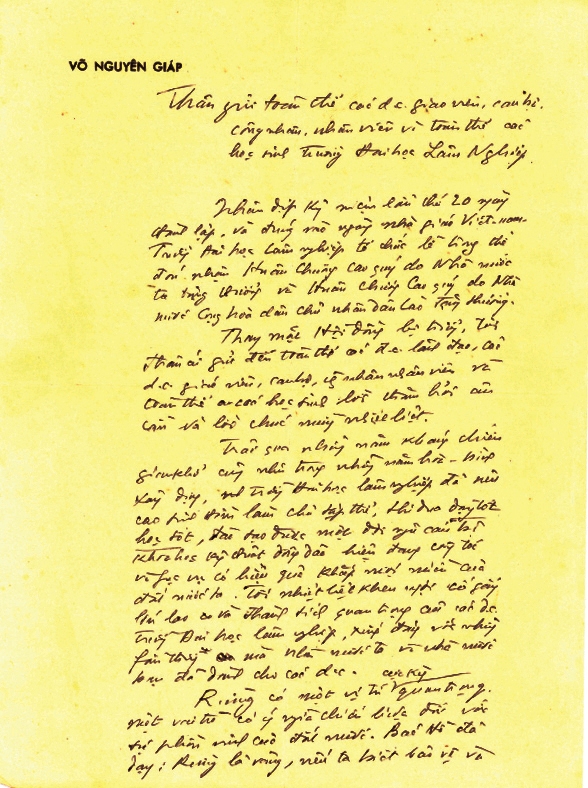 VÕ NGUYÊN GIÁP
Thân gửi toàn thể các đ.c. giáo viên, cán bộ,
công nhân, nhân viên và toàn thể các
học sinh trường Đại học Lâm Nghiệp
Nhân dịp kỷ niệm lần thứ 20 ngày
thành lập, và đúng vào ngày nhà giáo Việt-nam,
Trường Đại học Lâm nghiệp tổ chức lễ trọng thể
đón nhận Huân Chương cao quý do Nhà nước
ta tặng thưởng và Huân chương Cao quý do Nhà
nước Cộng hoà dân chủ nhân dân Lào tặng thưởng.
Thay mặt Hội đồng bộ trưởng, tôi
thân ái gửi đến toàn thể các đ.c. lãnh đạo, các
đ.c. giáo viên, cán bộ, công nhân nhân viên và
toàn thể các học sinh lời thăm hỏi ân
cần và lời chúc mừng nhiệt liệt.
Trải qua những năm kháng chiến
gian khổ cũng như trong những năm hoà-bình
xây dựng, trường Đại học lâm nghiệp đã nêu
cao tinh thần làm chủ tập thể, thi đua dạy tốt
học tốt, đào tạo được một đội ngũ cán bộ
khoa học kỹ thuật đông đảo hiện đang công tác
và phục vụ có hiệu quả khắp mọi miền của
đất nước ta. Tôi nhiệt liệt khen ngợi cố gắng
to lớn và thành tích quan trọng của các đ.c.
trường Đại học lâm nghiệp, xứng đáng với những
phần thưởng mà Nhà nước ta và nhà nước
bạn đã dành cho các đ.c.
Rừng có một vị trí cực kỳ quan trọng,
một vai trò có ý nghĩa chiến lược đối với
sự phồn vinh của đất nước. Bác Hồ đã
dạy: Rừng là vàng, nếu ta biết bảo vệ và